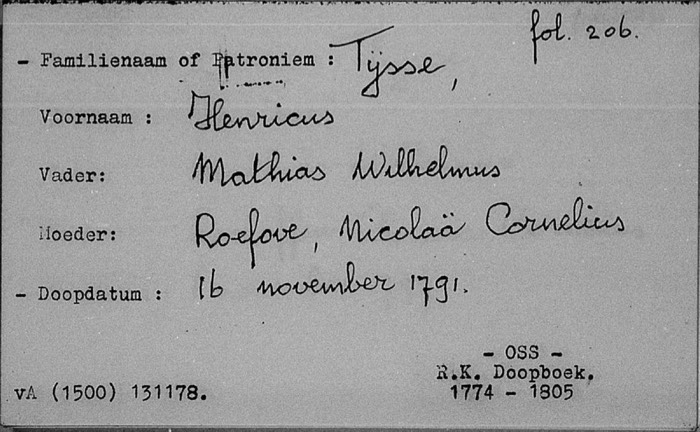 fol. 206.
- Familienaam of Patroniem : Tÿsse,
Voornaam : Henricus
Vader: Mathias Wilhelmus
Moeder: Roefove, Nicolaä Cornelius
- Doopdatum : 16 november 1791.
- OSS -
R.K. Doopboek.
vA (1500) 131178. 1774 - 1805